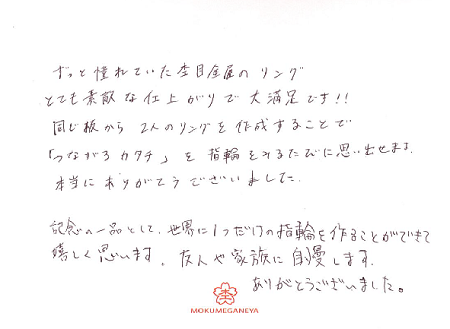 ずっと憧れていた杢目金屋のリング
とても素敵な仕上がりで大満足です!!
同じ板から2人のリングを作成することで
「つながるカタチ」を指輪をみるたびに思い出せます。
本当にありがとうございました。
記念の一品として、世界に1つだけの指輪を作ることができて
嬉しく思います。友人や家族に自慢します。
ありがとうございました。
MOKUMEGANEYA